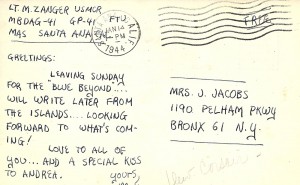 LT. M. ZANGER USMCR
MBDAG-41 GP-41 FTU
MAS SANTA ANA
JAN 14
PM
1944
CALIF.
FREE
GREETINGS:
LEAVING SUNDAY
FOR THE "BLUE BEYOND"....
WILL WRITE LATER FROM
THE ISLANDS.... LOOKING
FORWARD TO WHAT'S COM-
ING!
LOVE TO ALL OF
YOU... AND A SPECIAL KISS
TO ANDREA.
YOURS,
MRS. J. JACOBS
1190 PELHAM PKWY
BRONX 61 N.Y.